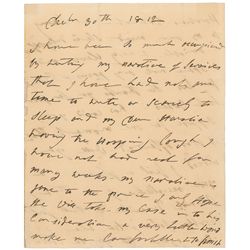 Decbr 30th 1812
I have been so much occupied
by writing my narrative of Services
that I have had not one
time to write or scarcely to
sleep and my own Horatia
having the Hooping Cough I
have not had rest for
many weeks. my narrative is
gone to the prince of and I hope
He will take my Case in to his
Consideration a very little would
make me Comfortable